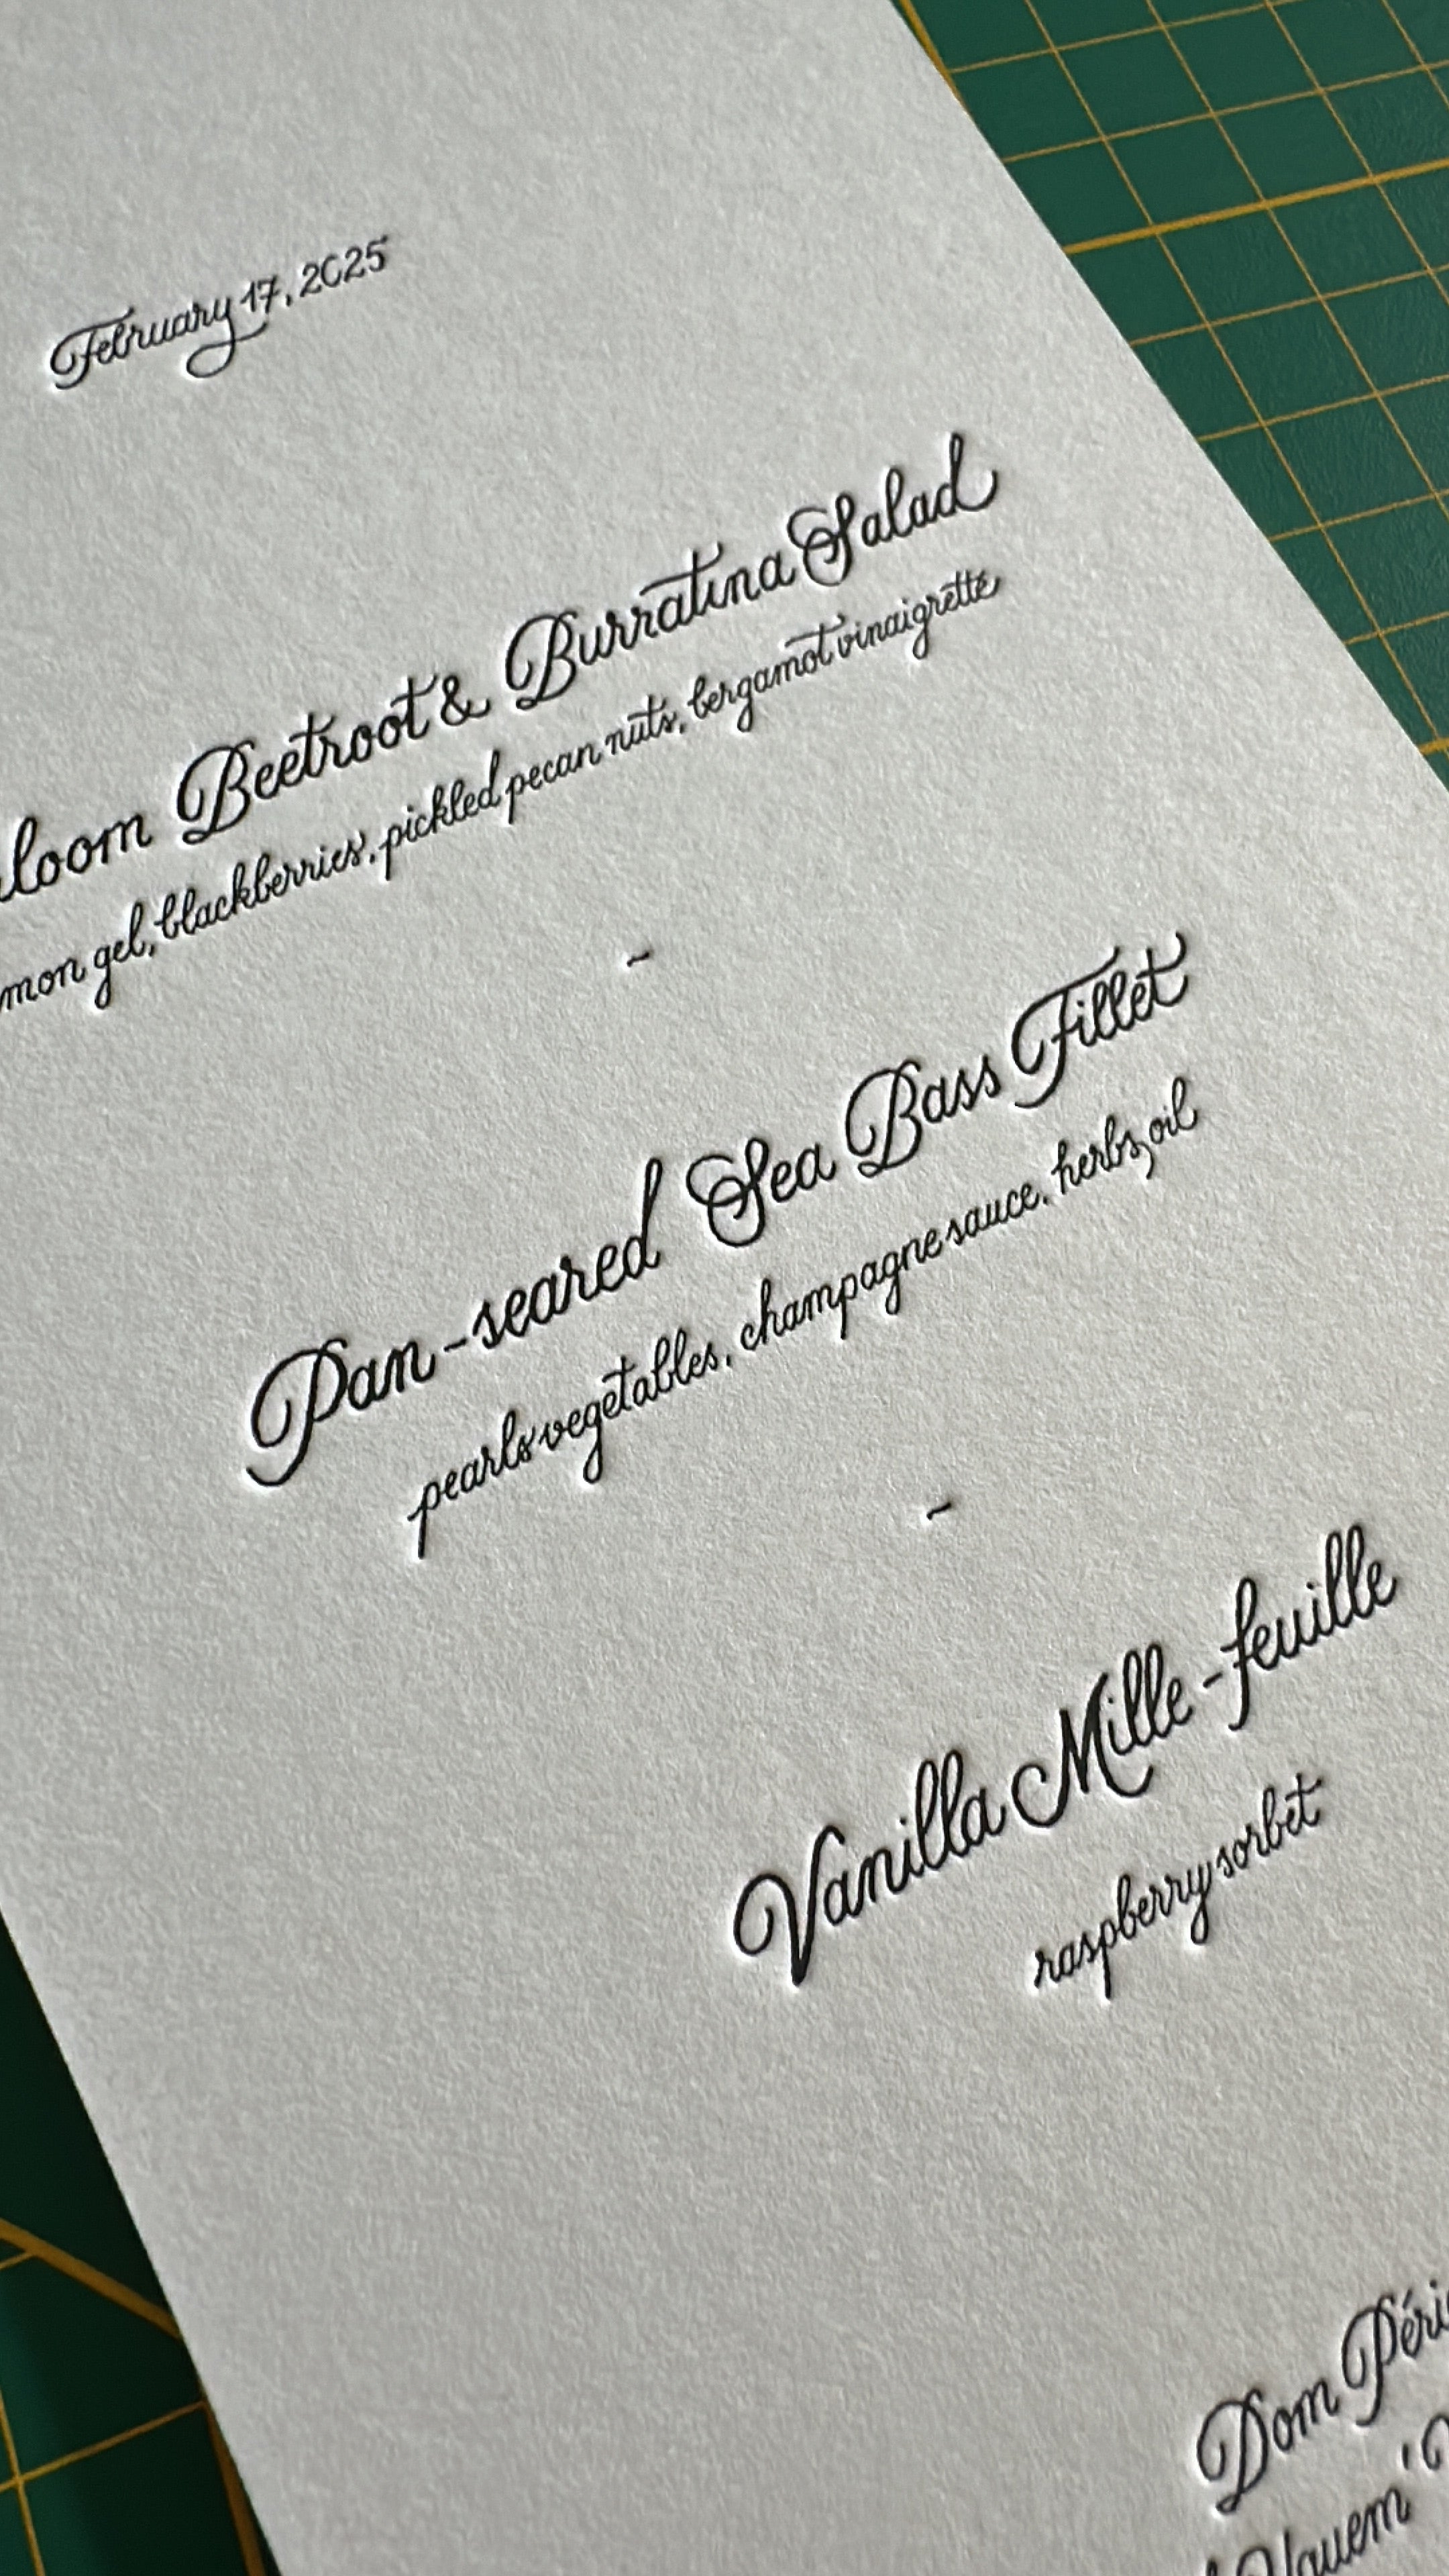 February 17, 2025
loom Beetroot & Burratina Salad
mon gel, blackberries, pickled pecan nuts, bergamot vinaigrette
~
Pan-seared Sea Bass Fillet
pearls vegetables, champagne sauce, herbs oil
~
Vanilla Mille-feuille
raspberry sorbet
Dom Péri
Yquem'